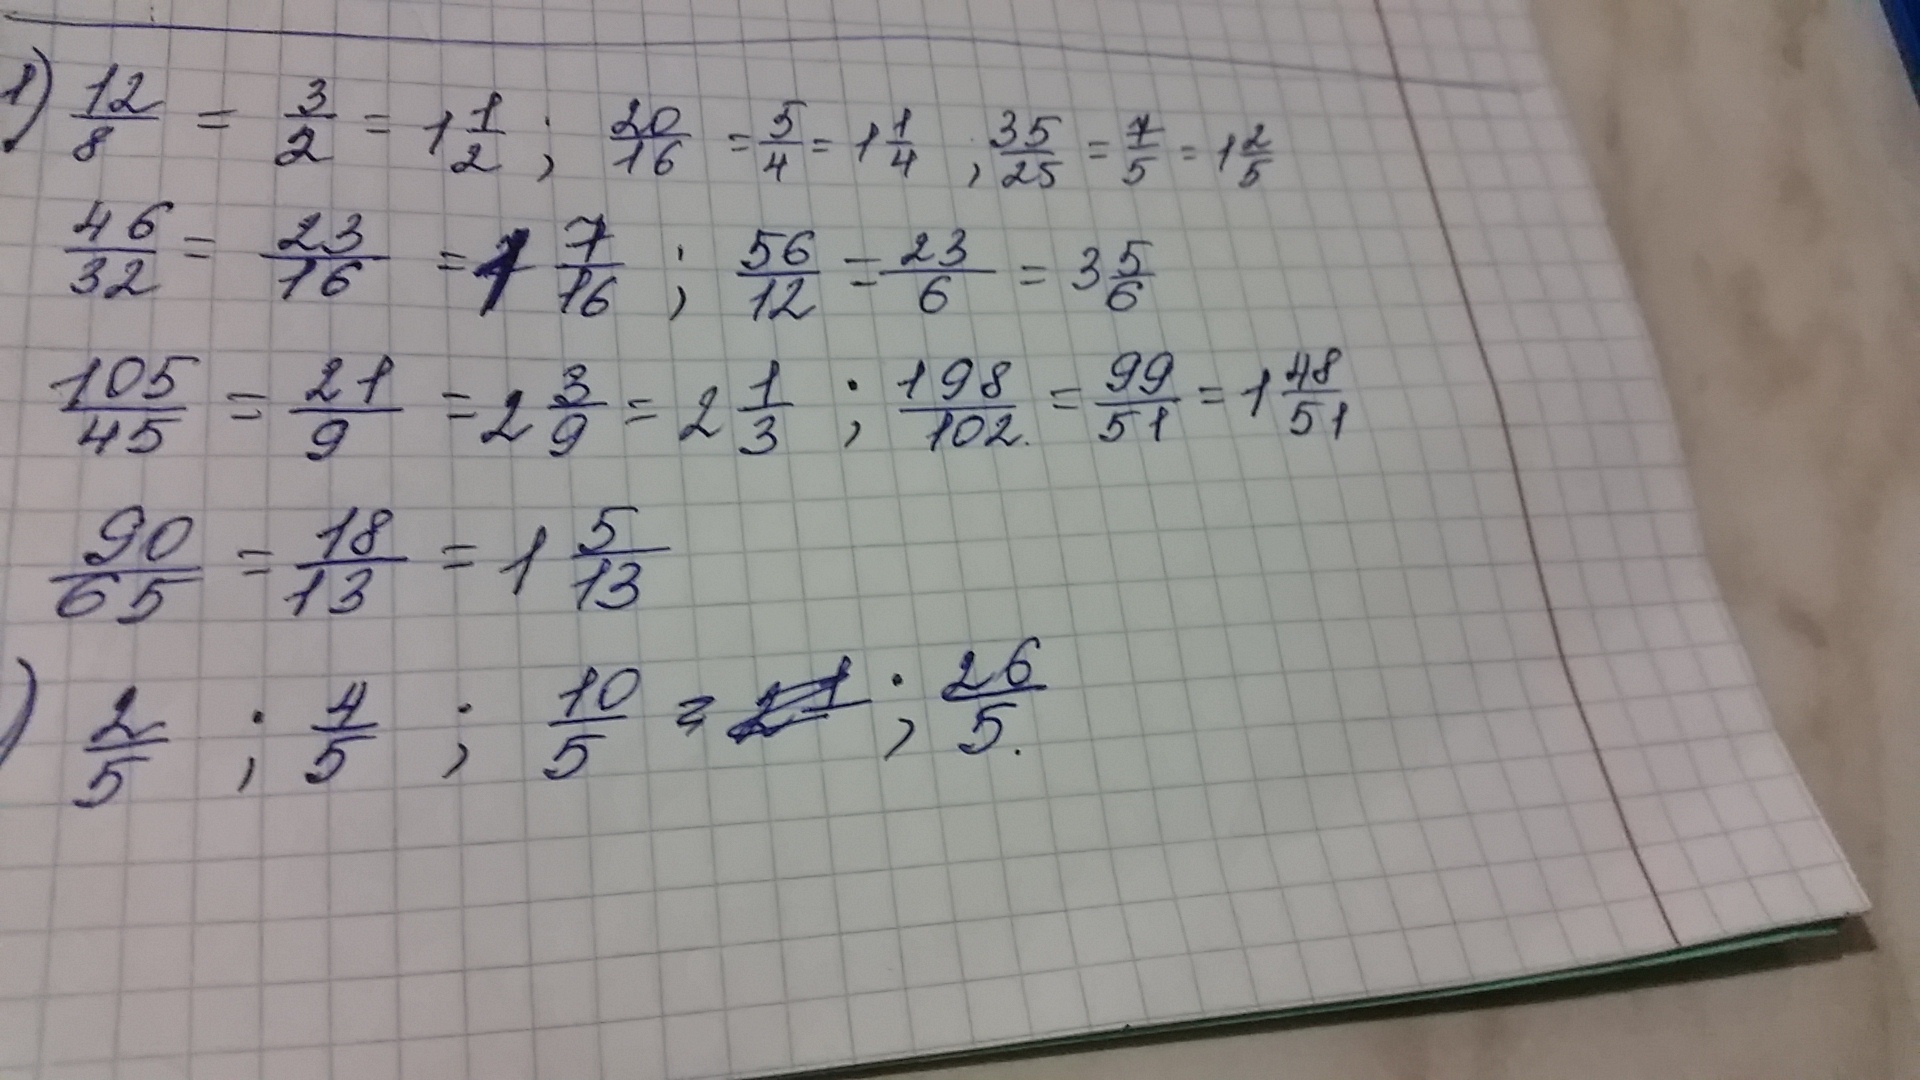 1) 12/8 = 3/2 = 1 1/2 ; 20/16 = 5/4 = 1 1/4 ; 35/25 = 7/5 = 1 2/5
46/32 = 23/16 = 1 7/16 ; 56/12 = 23/6 = 3 5/6
105/45 = 21/9 = 2 3/9 = 2 1/3 ; 198/102. = 99/51 = 1 48/51
90/65 = 18/13 = 1 5/13
) 2/5 ; 4/5 ; 10/5 = ; 26/5.